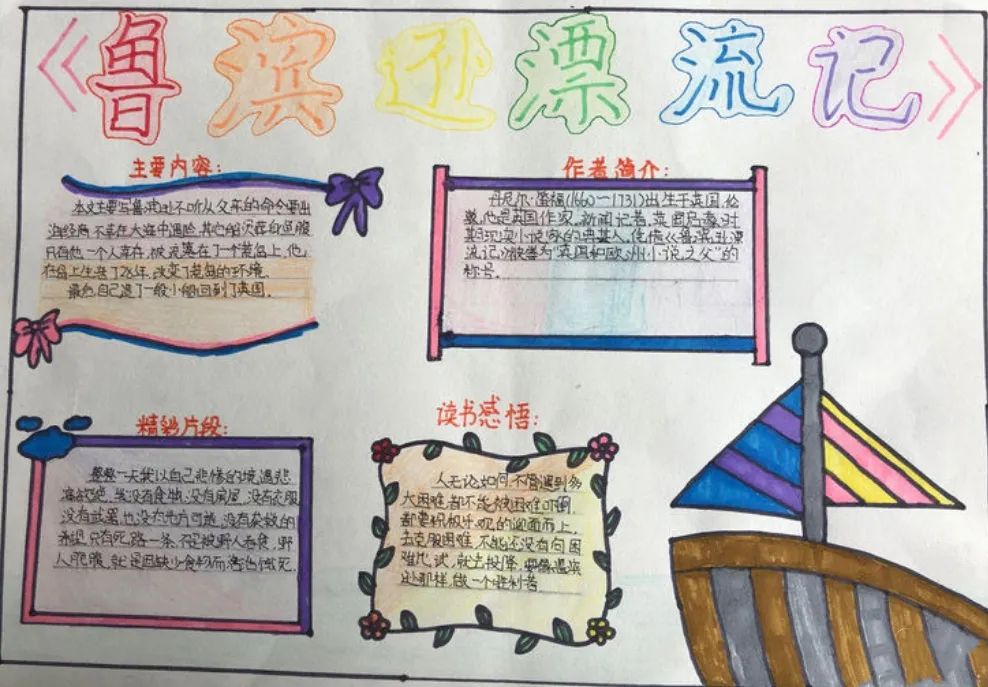 《鲁滨逊漂流记》
主要内容:
本文主要写鲁滨逊不听从父亲的命令要出
海经商,不幸在大海中遇险,其他船员在鱼腹
只有他一个人幸存,被流落在了一个荒岛上,他
在岛上生活了28年,改变了荒岛的环境,
最后,自己造了一般小船回到了英国。
作者简介:
丹尼尔·笛福(1660-1731)出生于英国伦
敦,他是英国作家,新闻记者,英国启蒙时
期现实小说家的典基人,凭借《鲁滨逊漂
流记》被誉为"英国和欧洲小说之父"的
称号.
精彩片段:
整整一天我以自己悲惨的环境,
没有食物,没有房屋,没有衣服
没有武器,也没有
只有死路一条,不是被野人吞食,野
就是因缺少食物而活活饿死.
读书感悟:
人无论如何,不管遇到多
大困难,都不能被困难吓倒,
都要积极乐观的迎面而上,
去克服困难,不能还没有向困
难尝试,就去投降,要像鲁滨
逊那样,做一个胜利者